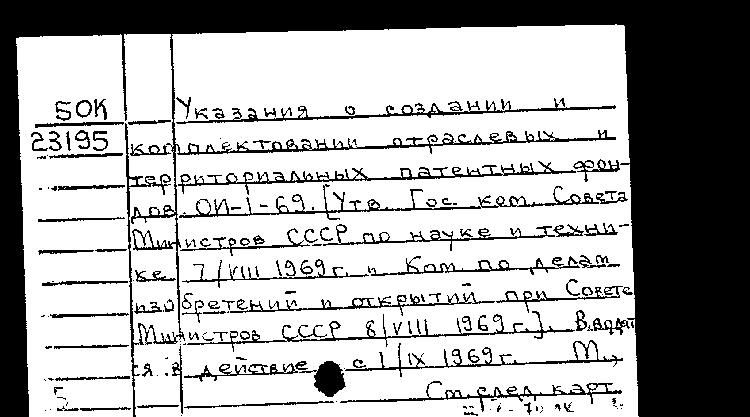 БОК Указания о создании и
23195 комплектовании отраслевых и
территориальных патентных фон-
дов. ОИ-1-69. [Утв. Гос. ком. Совета
Министров СССР по науке и техни-
ке 7/VIII 1969г. и Ком по делам
изобретений и открытий при Совете
Министров СССР 8/VIII 1969г.]. Вводят
ся в действие с 1/IX 1969г. М.,
5 См. след. карт.